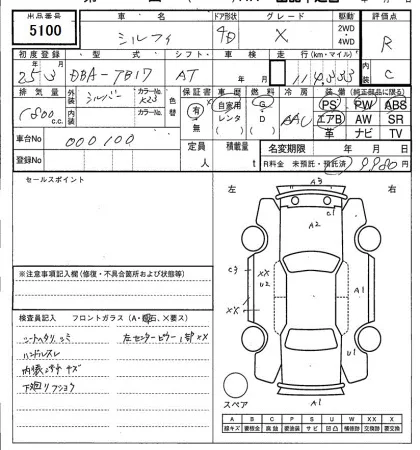 出品番号 車名 ドア形状 グレード 駆動 評価点
5100 シルフィ 4D X 2WD・4WD R
初度登録 型式 シフト 車検 走行(km・マイル) 内装
25年3月 DBA-TB17 AT 年 月 C
排気量 外装 シルバー カラーNo. K23 色替 保証書 車歴 燃料 冷房 装備(純正部品に限る)
1800 c.c. 内装 カラーNo. 有・無 自家用 レンタ ( ) G・D ( ) AAC PS PW ABS
エアB AW SR
革 ナビ TV
車台No 000100 定員 人 積載量 t 名変期限 年 月 日
登録No R料金 未預託・預託済 9,980円
セールスポイント
左 右
A3
C1
A2
C3 XX
U2
XX
A1
U1
A1
スペア
※注意事項記入欄(修復・不具合箇所および状態等)
検査員記入 フロントガラス(A・飛石、X要ス)
シートヘタリ、シミ 左センターピラー
ハンドルスレ
内張 キズ
下廻りフショク
A B C P S U W X XX
線キズ 要板金 腐蝕 要塗装 サビ 凹凸 補修跡 要交換